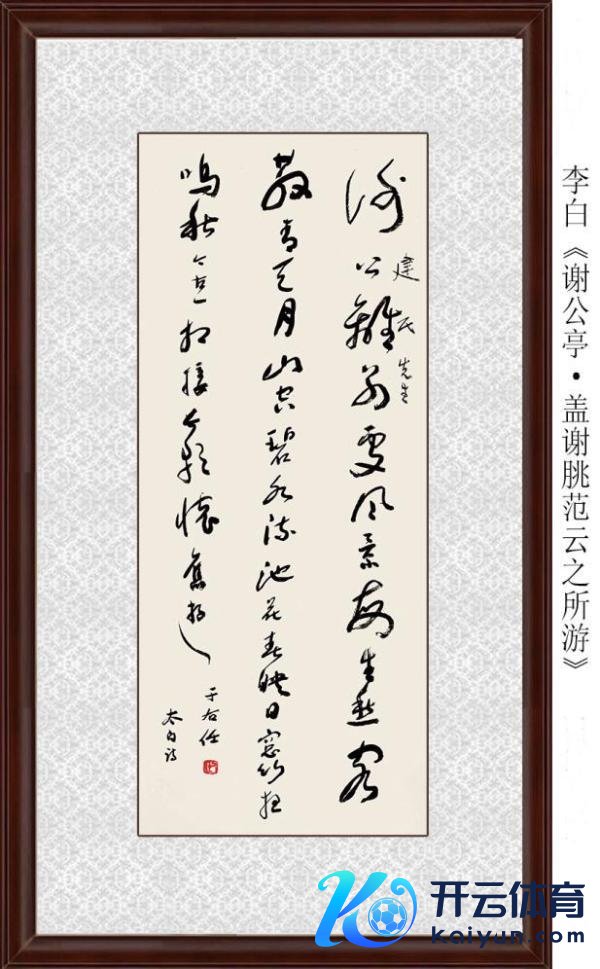 李白《谢公亭·盖谢朓范云之所游》
謝公離别處風景每生愁客
建民先生
散青天月山空碧水流池花春映日窗竹夜
鳴秋今古一相接長歌懷舊游
于右任
太白诗
开云体育
kaiyun.com